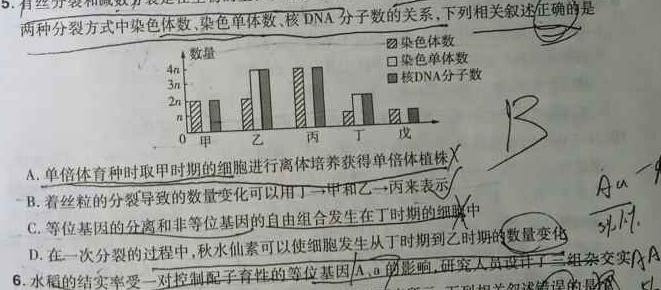 5. 有丝分裂和减数分裂是在生物的
两种分裂方式中染色体数、染色单体数、核DNA分子数的关系,下列相关叙述正确的是
数量
4n
3n
2n
n
0 甲 乙 丙 丁 戊
染色体数
染色单体数
核DNA分子数
B
A. 单倍体育种时取甲时期的细胞进行离体培养获得单倍体植株
B. 着丝粒的分裂导致的数量变化可以用丁→甲和乙→丙来表示
C. 等位基因的分离和非等位基因的自由组合发生在丁时期的细胞中
D. 在一次分裂的过程中,秋水仙素可以使细胞发生从丁时期到乙时期的数量变化
6. 水稻的结实率受一对控制配子育性的等位基因A、a的影响,研究人员设计了三组杂交实